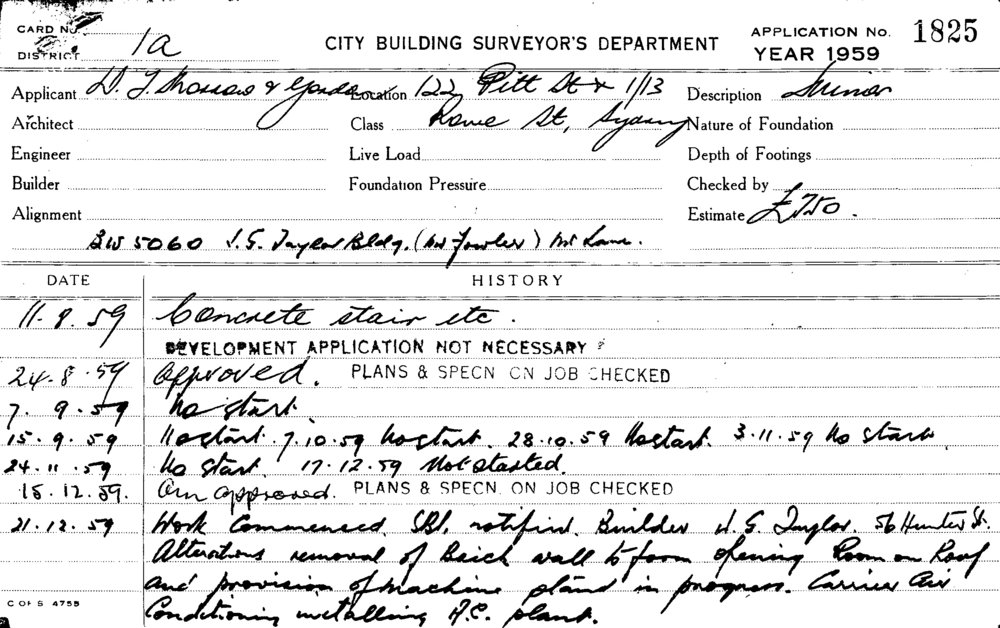 CARD No.
DISTRICT 1a
CITY BUILDING SURVEYOR'S DEPARTMENT
APPLICATION No. 1825
YEAR 1959
Applicant D. T. Morrow & Gordon Location 122 Pitt St & 1/13 Description Minor
Architect Class Rowe St, Sydney Nature of Foundation
Engineer Live Load Depth of Footings
Builder Foundation Pressure Checked by
Alignment Estimate £750.
BW 5060 J. G. Taylor Bldg. (Mr Fowler) Mr Lane.
DATE HISTORY
11.8.59 Concrete stair etc.
DEVELOPMENT APPLICATION NOT NECESSARY
24.8.59 Approved. PLANS & SPECN ON JOB CHECKED
7.9.59 No start
15.9.59 No start. 7.10.59 No start. 28.10.59 No start. 3.11.59 No start
24.11.59 No start. 17.12.59 Not started.
15.12.59. Am approved. PLANS & SPECN. ON JOB CHECKED
21.12.59 Work Commenced. notified. Builder J. G. Taylor. 56 Hunter St.
Alterations removal of Brick wall to form opening Room on Roof
and provision of machine stand in progress. Carrier Air
Conditioning installing A.C. plant.
C OF S 4755